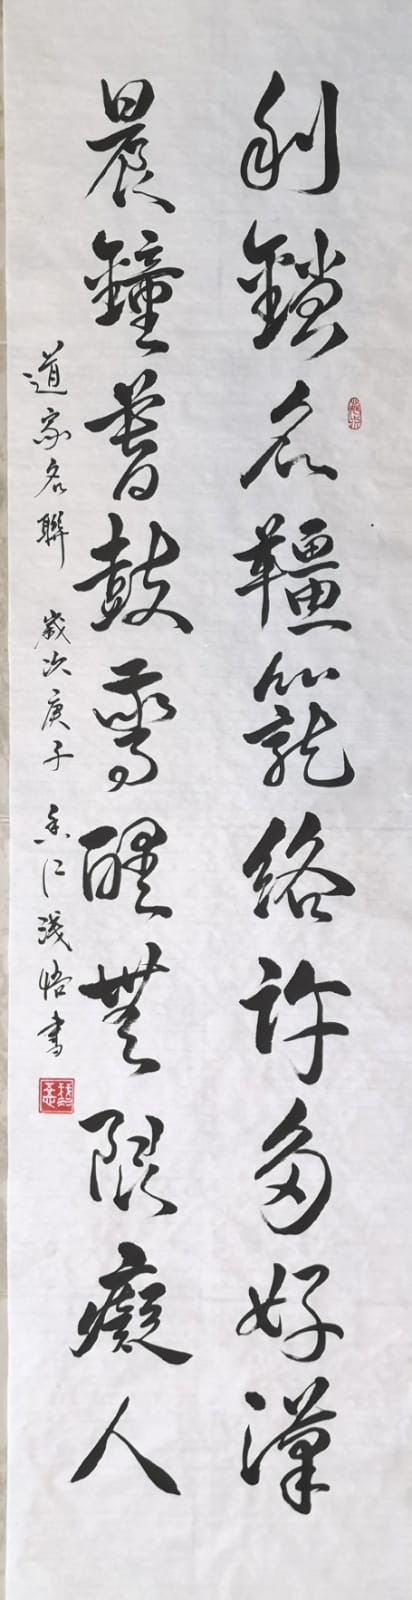 利鎖名韁籠絡許多好漢
晨鐘暮鼓驚醒無限癡人
道家名聯 歲次庚子 香江淺悟書